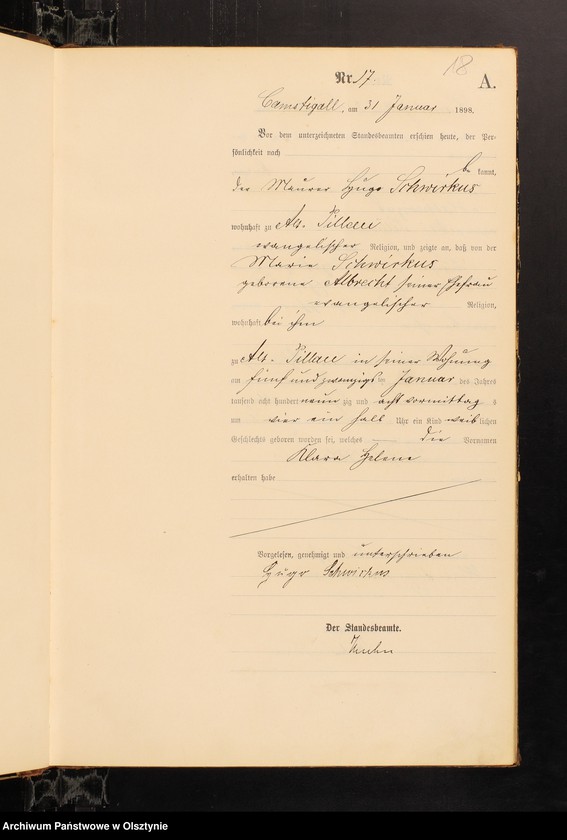 18
Nr. 17. A.
Camstigall, am 31 Januar 1898.
Vor dem unterzeichneten Standesbeamten erschien heute, der Per-
sönlichkeit nach
be kannt,
der Maurer Hugo Schwirkus
wohnhaft zu Alt-Pillau
evangelischer Religion, und zeigte an, daß von der
Marie Schwirkus
geborene Albrecht seiner Ehefrau
evangelischer Religion,
wohnhaft bei ihm
zu Alt-Pillau in seiner Wohnung
am fünf und zwanzigsten Januar des Jahres
tausend acht hundert neun zig und acht vormittags
um vier ein halb Uhr ein Kind weib lichen
Geschlechts geboren worden sei, welches die Vornamen
Klara Helene
erhalten habe
Vorgelesen, genehmigt und unterschrieben
Hugo Schwirkus
Der Standesbeamte.
Archiwum Państwowe w Olsztynie